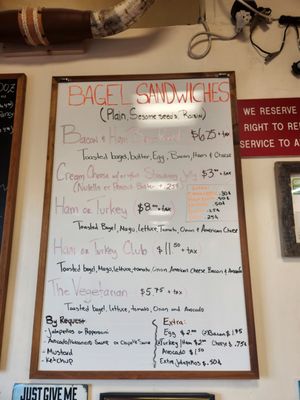 BAGEL SANDWICHES
(Plain, Sesame seeds, Raisin)
Bacon & Ham $6.75 + tax
Toasted bagel, butter, Egg, Bacon, Ham & Cheese
Cream Cheese Strawberry Jelly $3. + tax
(Nutella or Peanut Butter + .25¢)
Ham or Turkey $8. + tax
Toasted Bagel, Mayo, Lettuce, Tomato, Onion & American Cheese
Ham or Turkey Club $11.50 + tax
Toasted bagel, Mayo, lettuce, tomato, Onion, American Cheese, Bacon & Avocado
The Vegetarian $5.75 + tax
Toasted bagel, lettuce, tomato, Onions and Avocado
By Request:
- Jalapeños or Pepperoni
- Avocado/Habanero Sauce or Chipotle Sauce
- Mustard
- Ketchup
Extra:
Egg $2.00 (2) Bacon $1.95
Turkey/Ham $2.00 Cheese $.75¢
Avocado $1.50
Extra Jalapeños $.50¢
WE RESERVE
RIGHT TO RE
SERVICE TO A
JUST GIVE ME